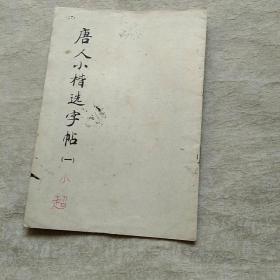 唐人小楷选字帖
(一)
小
超